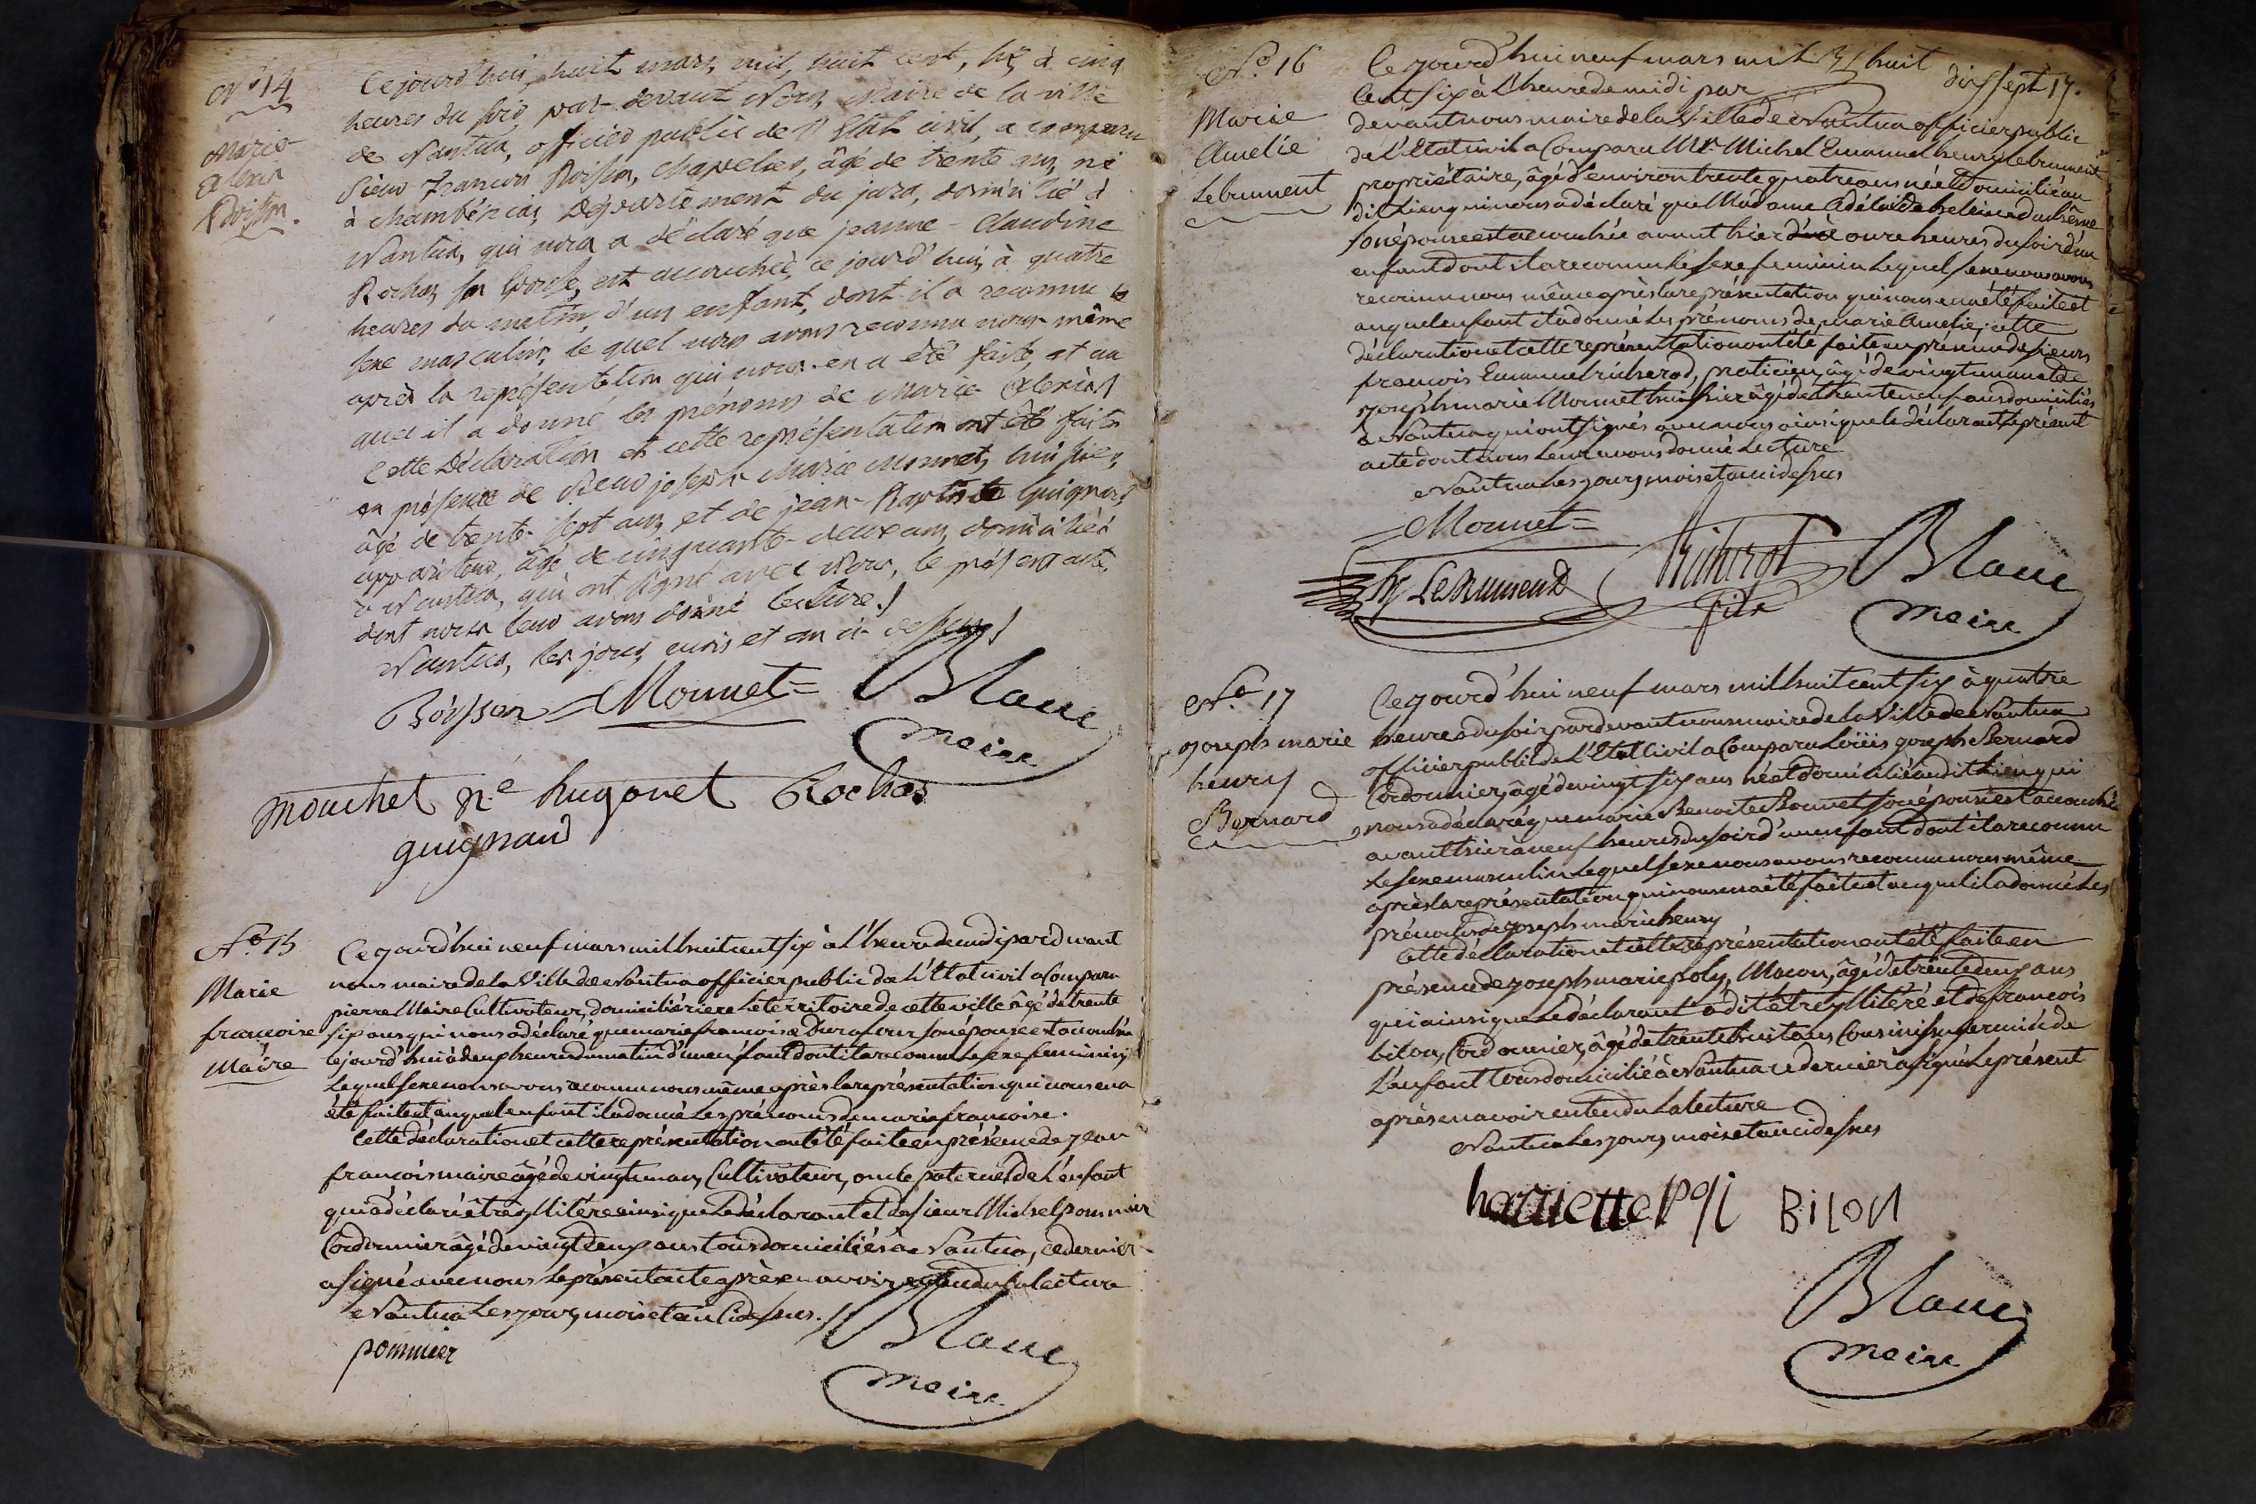 N.o 14
Marie
Alexis
Boisson.
Cejourd'hui, huit mars, mil, huit cent, six, à cinq
heures du soir, par-devant Nous, Maire de la ville
de Nantua, officier public de l'Etat civil, a comparu
sieur François Boisson, chapelier, âgé de trente ans, né
à chambéria, Département du jura, domicilié à
Nantua, qui nous a déclaré que jeanne-Claudine
Rochas, son Epouse, est accouchée, ce jourd'hui, à quatre
heures du matin, d'un enfant, dont il a reconnu le
sexe masculin, le quel nous avons reconnu nous-même
après la représentation qui nous en a été faite, et au
quel il a donné les prénoms de Marie Alexis
Cette Déclaration et cette représentation ont été faites
en présence de sieur joseph Marie Monnet, huissier,
âgé de trente-sept ans, et de jean-Baptiste Guignard
appariteur, âgé de cinquante-deux ans, domiciliés
à Nantua, qui ont signé avec Nous, le présent acte,
dont nous leur avons donné lecture.
Nantua, les jour, mois et an ci-dessus
Boysson Monnet Blanc
maire
mouchet né hugonet Rochas
guignard
N.o 15
Marie
francoise
Maire
Cejourd'hui neuf mars mil huit cent six à l'heure de midi pardevant
nous maire de la Ville de Nantua officier public de L'Etat civil a Comparu
pierre Maire Cultivateur, domicilié riere le territoire de cette ville âgé de trente
six ans qui nous a déclaré que marie francoise son épouse est accouchée
cejourd'hui à deux heures du matin d'un enfant dont il a reconnu le sexe feminin,
lequel sexe nous avons reconnu nous même après la représentation qui nous en a
été faite et auquel enfant il a donné les prénoms de marie francoise.
Cette déclaration et cette représentation ont été faite en présence de jean
françois maire âgé de vingt un ans, Cultivateur, oncle paternel de L'enfant
qui a déclaré être illiteré ainsi que le déclarant et de sieur Michel pommier
Cordonnier âgé de vingt deux ans tous domiciliés à Nantua, ce dernier
a signé avec nous le présent acte après en avoir entendu la lecture
Nantua Les jour, mois et an Ci dessus.
pommier Blanc
maire
dix sept 17.
N.o 16
Marie
Amelie
Lebrument
Ce jourd'hui neuf mars mil huit
Cent six à L'heure de midi par
devant nous maire de la Ville de Nantua officier public
de L'Etat civil a Comparu Mr. Michel Emanuel henry Lebrument
propriétaire, âgé d'environ trente quatre ans né et domicilié au
dit Lieu qui nous a déclaré que Madame Adélaïde heleine
son épouse est accouchée avant hier à onze heures du soir d'un
enfant dont il a reconnu Le sexe feminin Lequel sexe nous avons
reconnu nous même après la représentation qui nous en a été faite et
auquel enfant il a donné Les prénoms de marie Amelie, cette
déclaration et cette représentation ont été faite en présence de sieurs
francois Emanuel richerod, praticien, âgé de vingt un an et de
joseph marie Monnet huissier âgé de trente neuf ans domiciliés
à Nantua qui ont signés avec nous ainsi que le déclarant Le présent
acte dont nous Leur avons donné Lecture
Nantua Les jour, mois et an ci dessus
Monnet
hy LeBrument Richerot Blanc
fils maire
N.o 17
joseph marie
henry
Bernard
Ce jourd'hui neuf mars mil huit cent six à quatre
heures du soir pardevant nous maire de la Ville de Nantua
officier public de L'Etat Civil a Comparu Loüis joseph Bernard
Cordonnier, âgé de vingt six ans né et domicilié au dit Lieu qui
nous a déclaré que marie Benoite Bonnet son épouse est accouchée
avant hier à neuf heures du soir d'un enfant dont il a reconnu
Le sexe masculin Lequel sexe nous avons reconnu nous même
après la représentation qui nous en a été faite et auquel il a donné Les
prénoms de joseph marie henry
Cette déclaration et cette représentation ont été faite en
présence de joseph marie poly, Macon, âgé de trente deux ans
qui ainsi que Le déclarant a dit être illiteré et de francois
bilon, Cordonnier, âgé de trente huit ans Cousin issu germain de
L'enfant tous domicilié à Nantua ce dernier a signé Le présent
après en avoir entendu La lecture
Nantua Les jour, mois et an ci dessus
BiLON
Blanc
maire